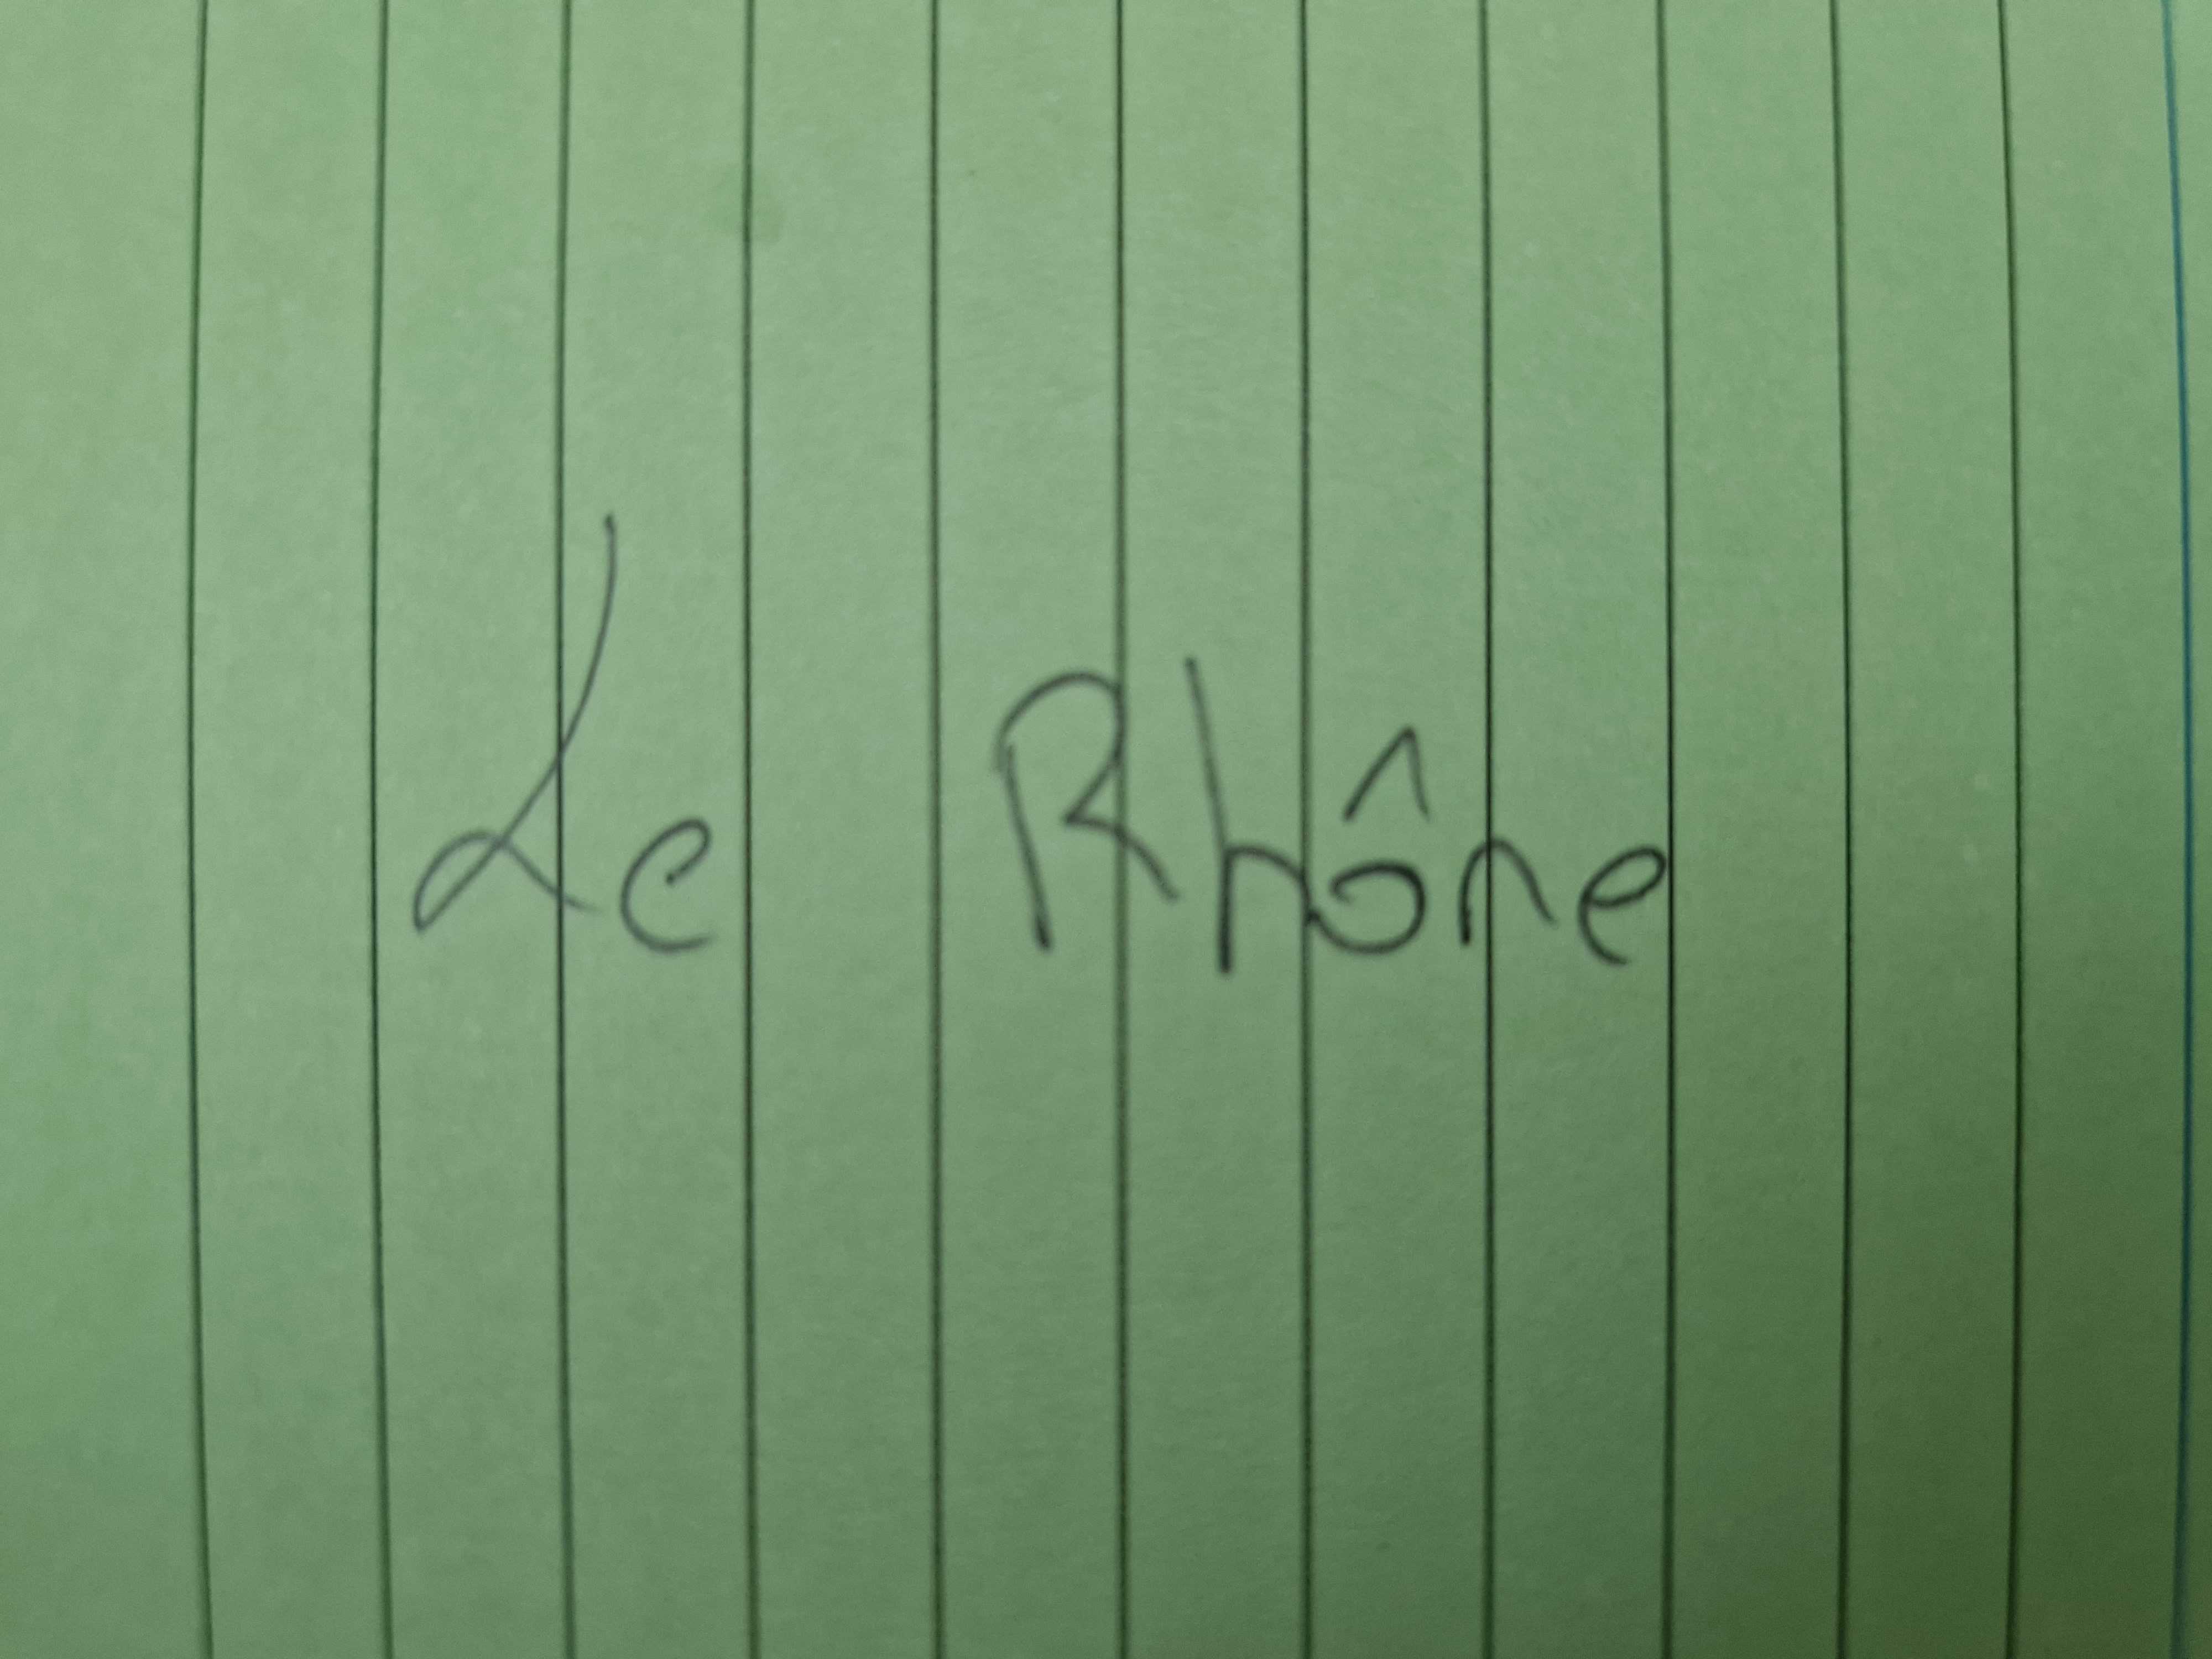 Le Rhône